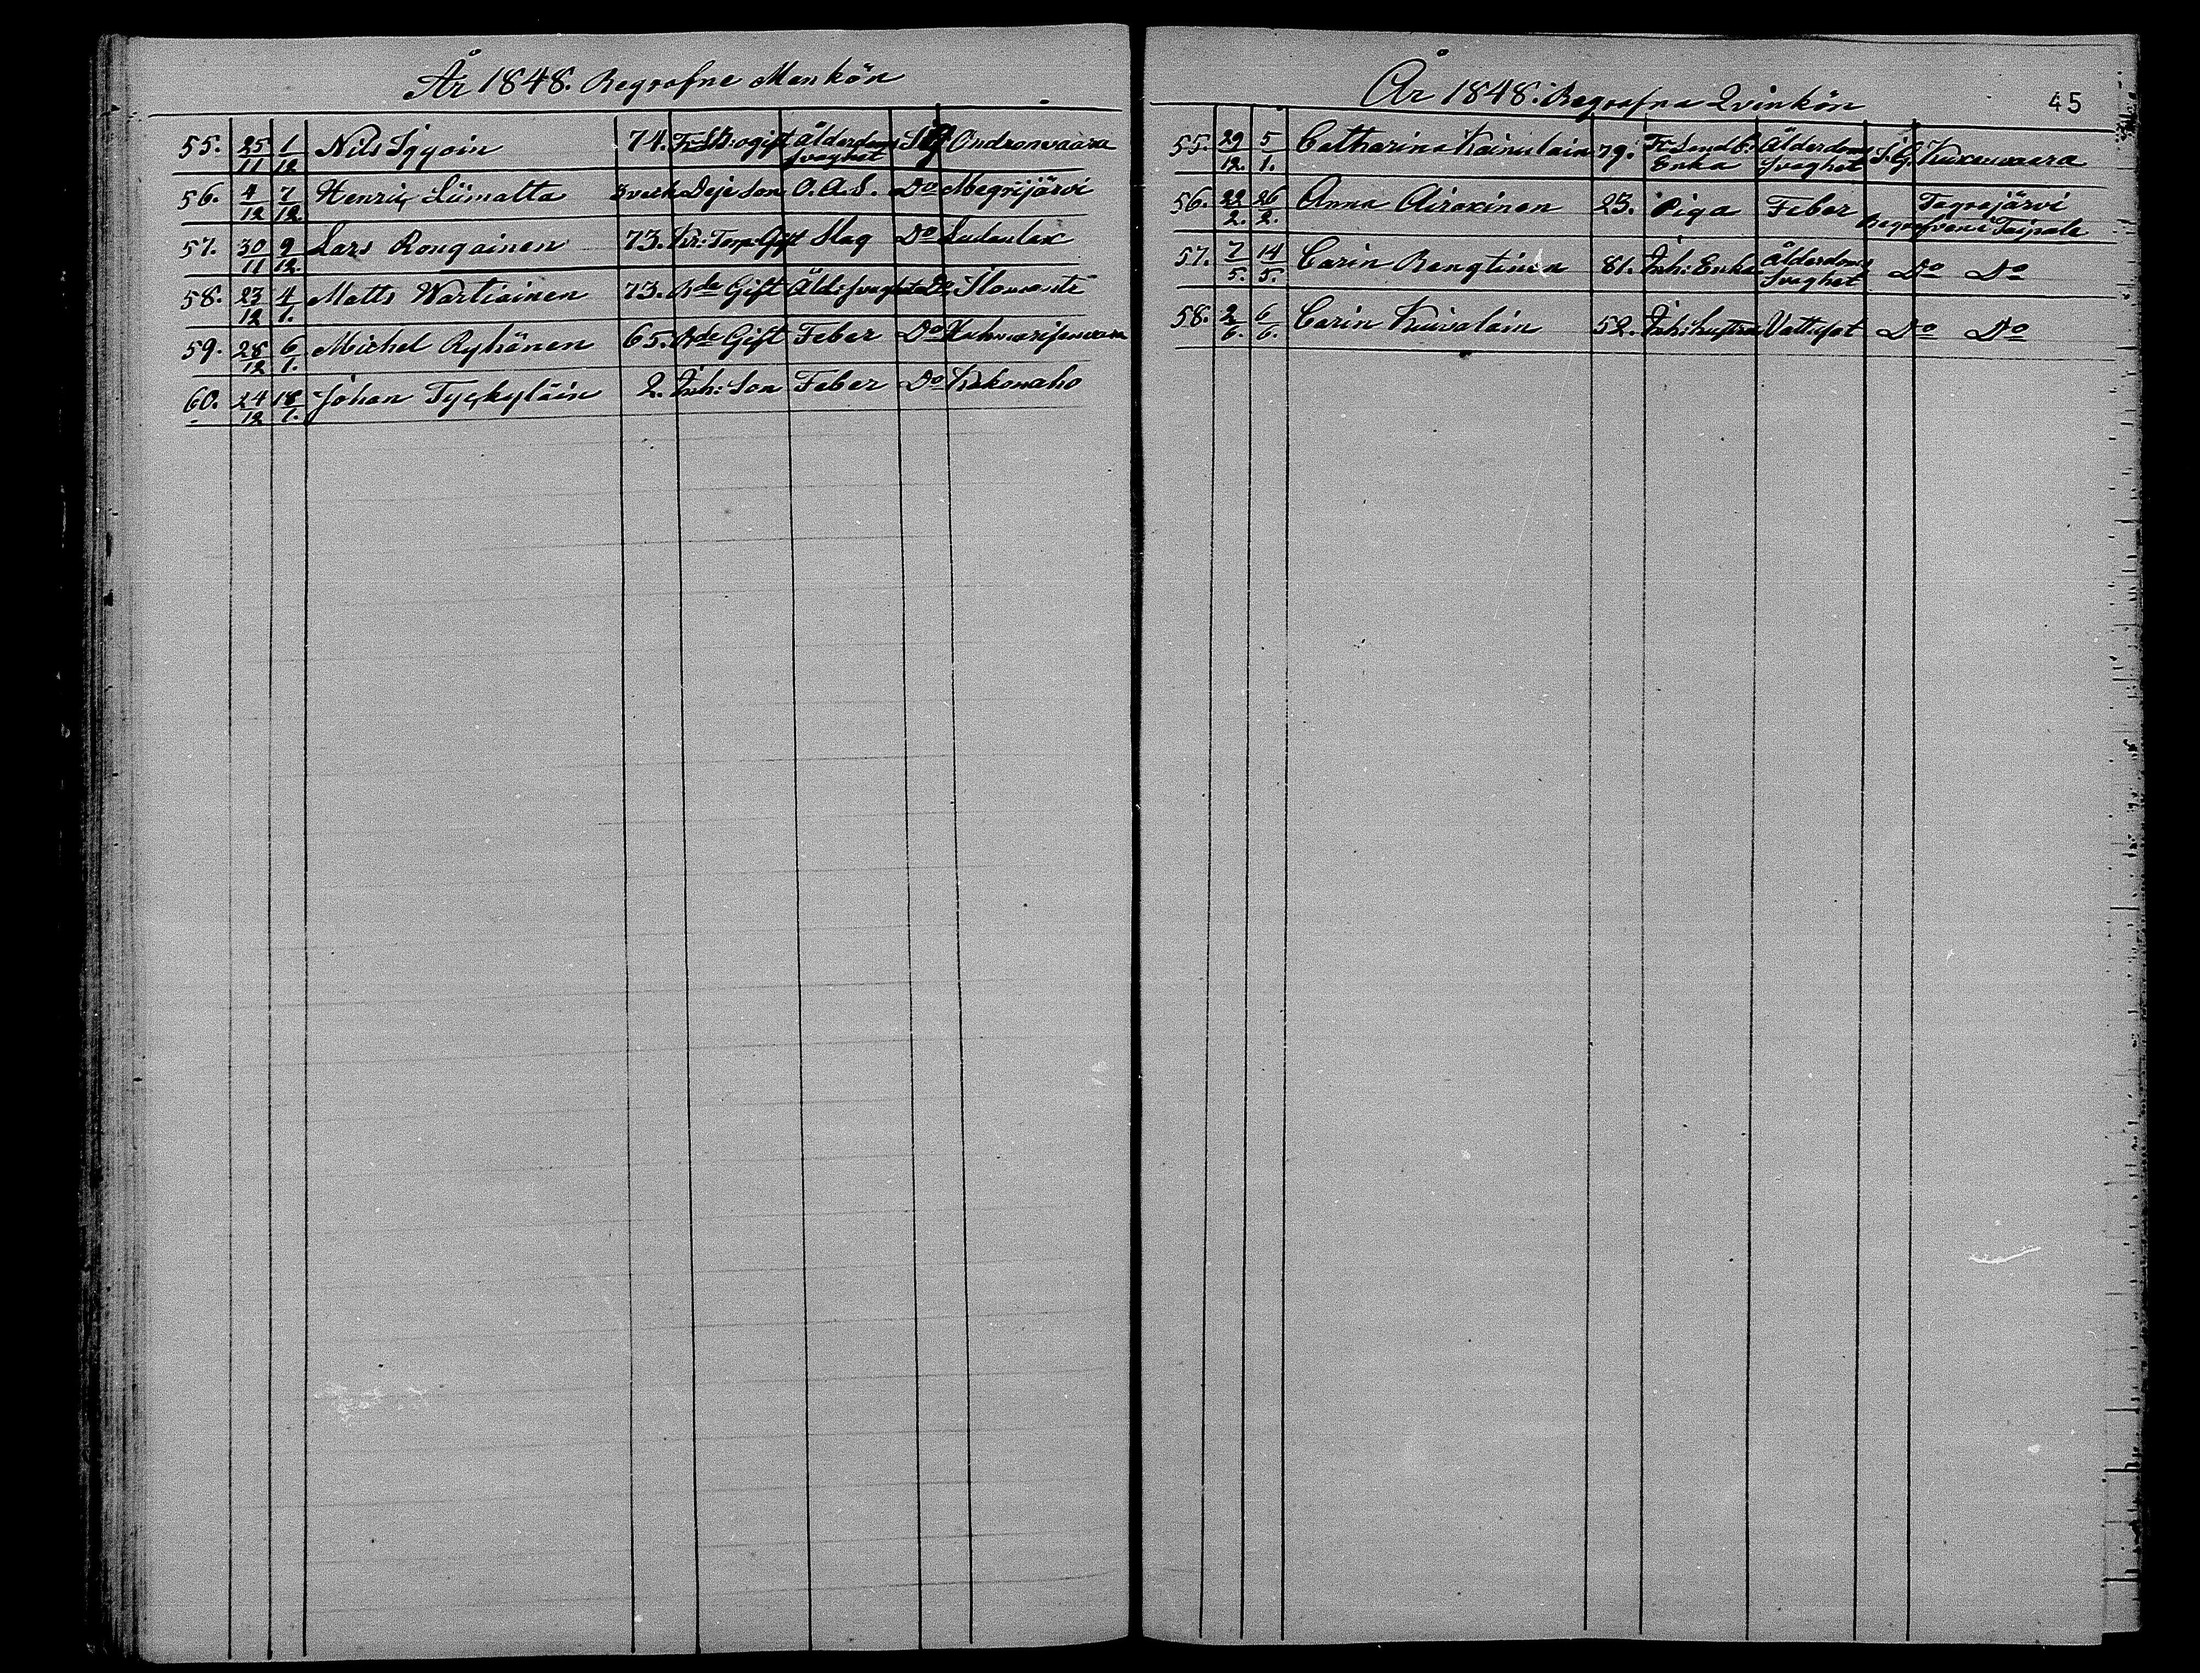 År 1848. Begrafne Mankön
55. 25/11 1/12 Nils Iggoin 74. ogift Ålderdoms Svaghet Ondronvaara
56. 4/12 7/12 Henric Liimatta 3 veck Deje Son O.A.S. Do Megrijärvi
57. 30/11 9/12 Lars Rongainen 73. Kr: Torp: Gift Slag Do
58. 23/12 4/1. Matts Wartiainen 73. Bde Gift Åld: Svaghet Do Ilomants
59. 28/12 6/1. Michel Ryhönen 65. Bde Gift Feber Do
60. 24/12 18/1. Johan Tyckyläin 2. Inh: Son Feber Do Kokonaho
År 1848. Begrafna Qvinkön
45
55. 29/12. 5/1. Catharina Kainulain 79. Enka Ålderdoms Svaghet S.G. Kuxenvaara
56. 22/2. 26/2. Anna Airaxinen 23. Piga Feber Tegrojärvi
Begrafven i Taipale
57. 7/5. 14/5. Carin Rengtinen 81. Inh: Enka Ålderdoms Svaghet Do Do
58. 2/6. 6/6. Carin Kuivalain 52. Inh: hustru Vattusot Do Do